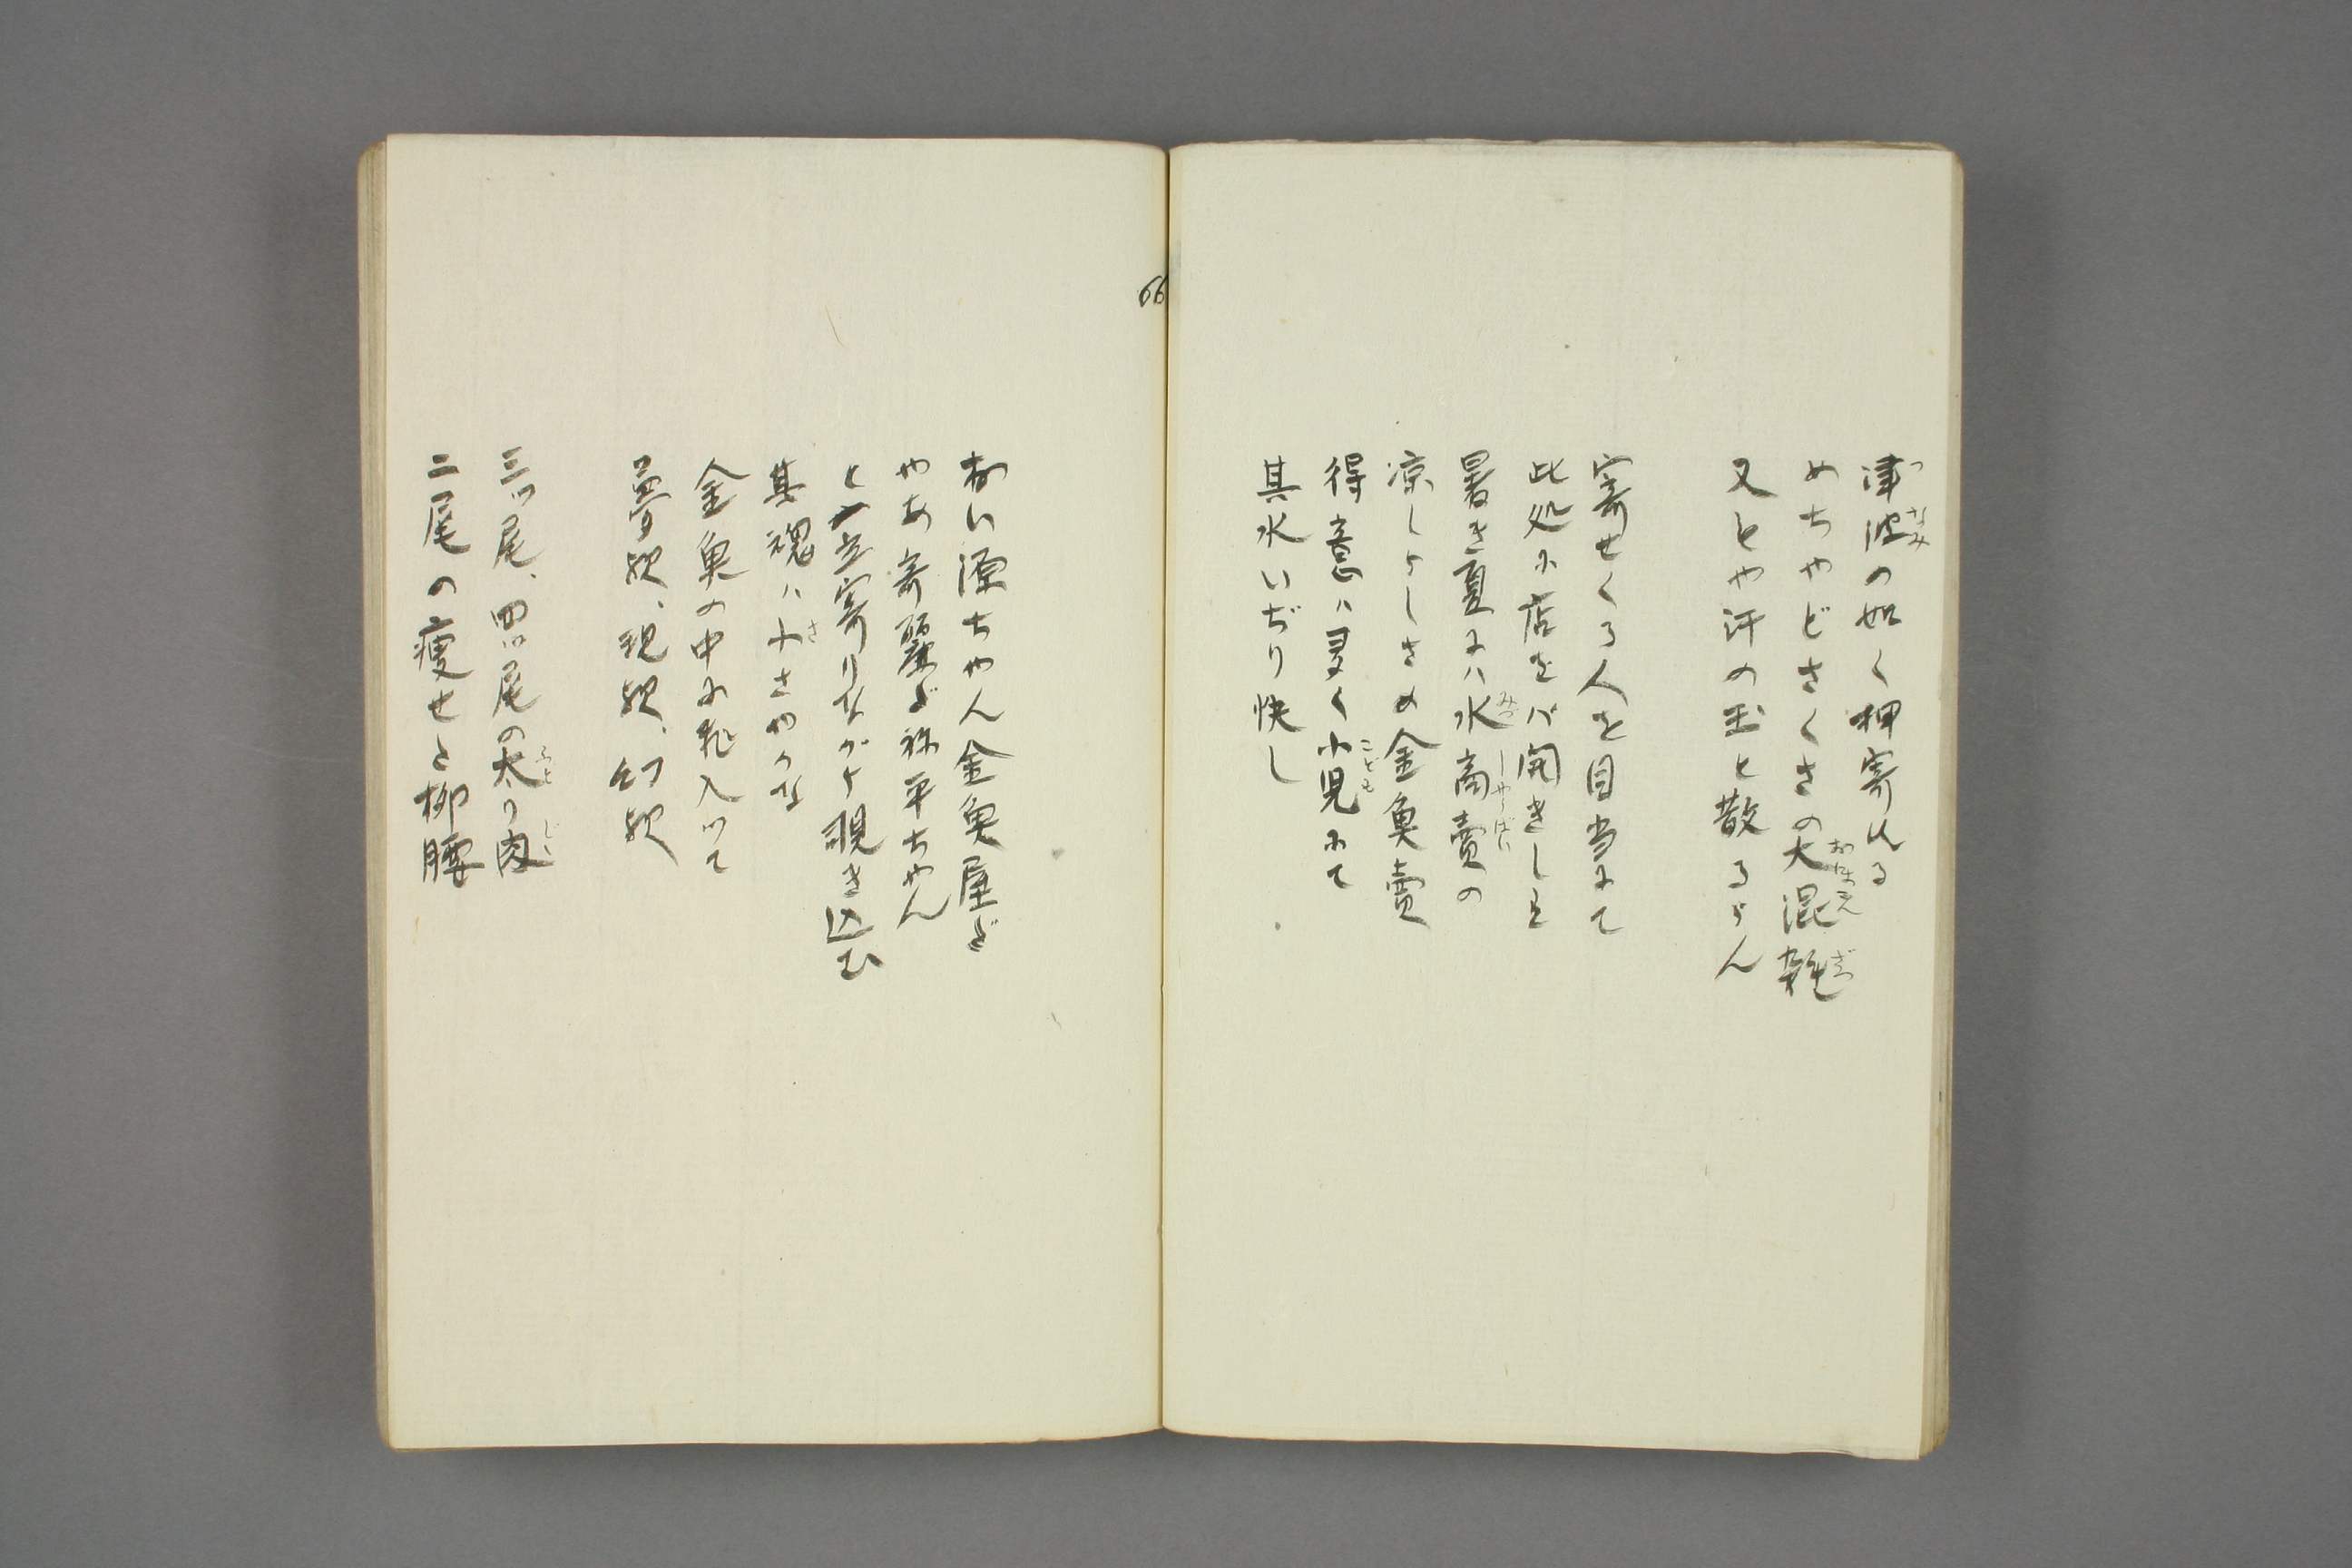 津波の如く押寄れる
めちやどさくさの大混雑
又とや汗の玉と散るらん
寄せくる人を目当にて
此処に店をバ開きしを
暑き夏にハ水商売の
凉しようしさの金魚売
得意ハ多く小児にて
其水いぢり快し
66
おい源ちやん金魚屋だ
やあ奇麗だ祢平ちやん
と立寄りながら覗き込む
其魂ハ小さやかな
金魚の中に飛入つて
夢歟、現歟、幻歟
三ツ尾、四ツ尾の太り肉
二尾の痩せと柳腰